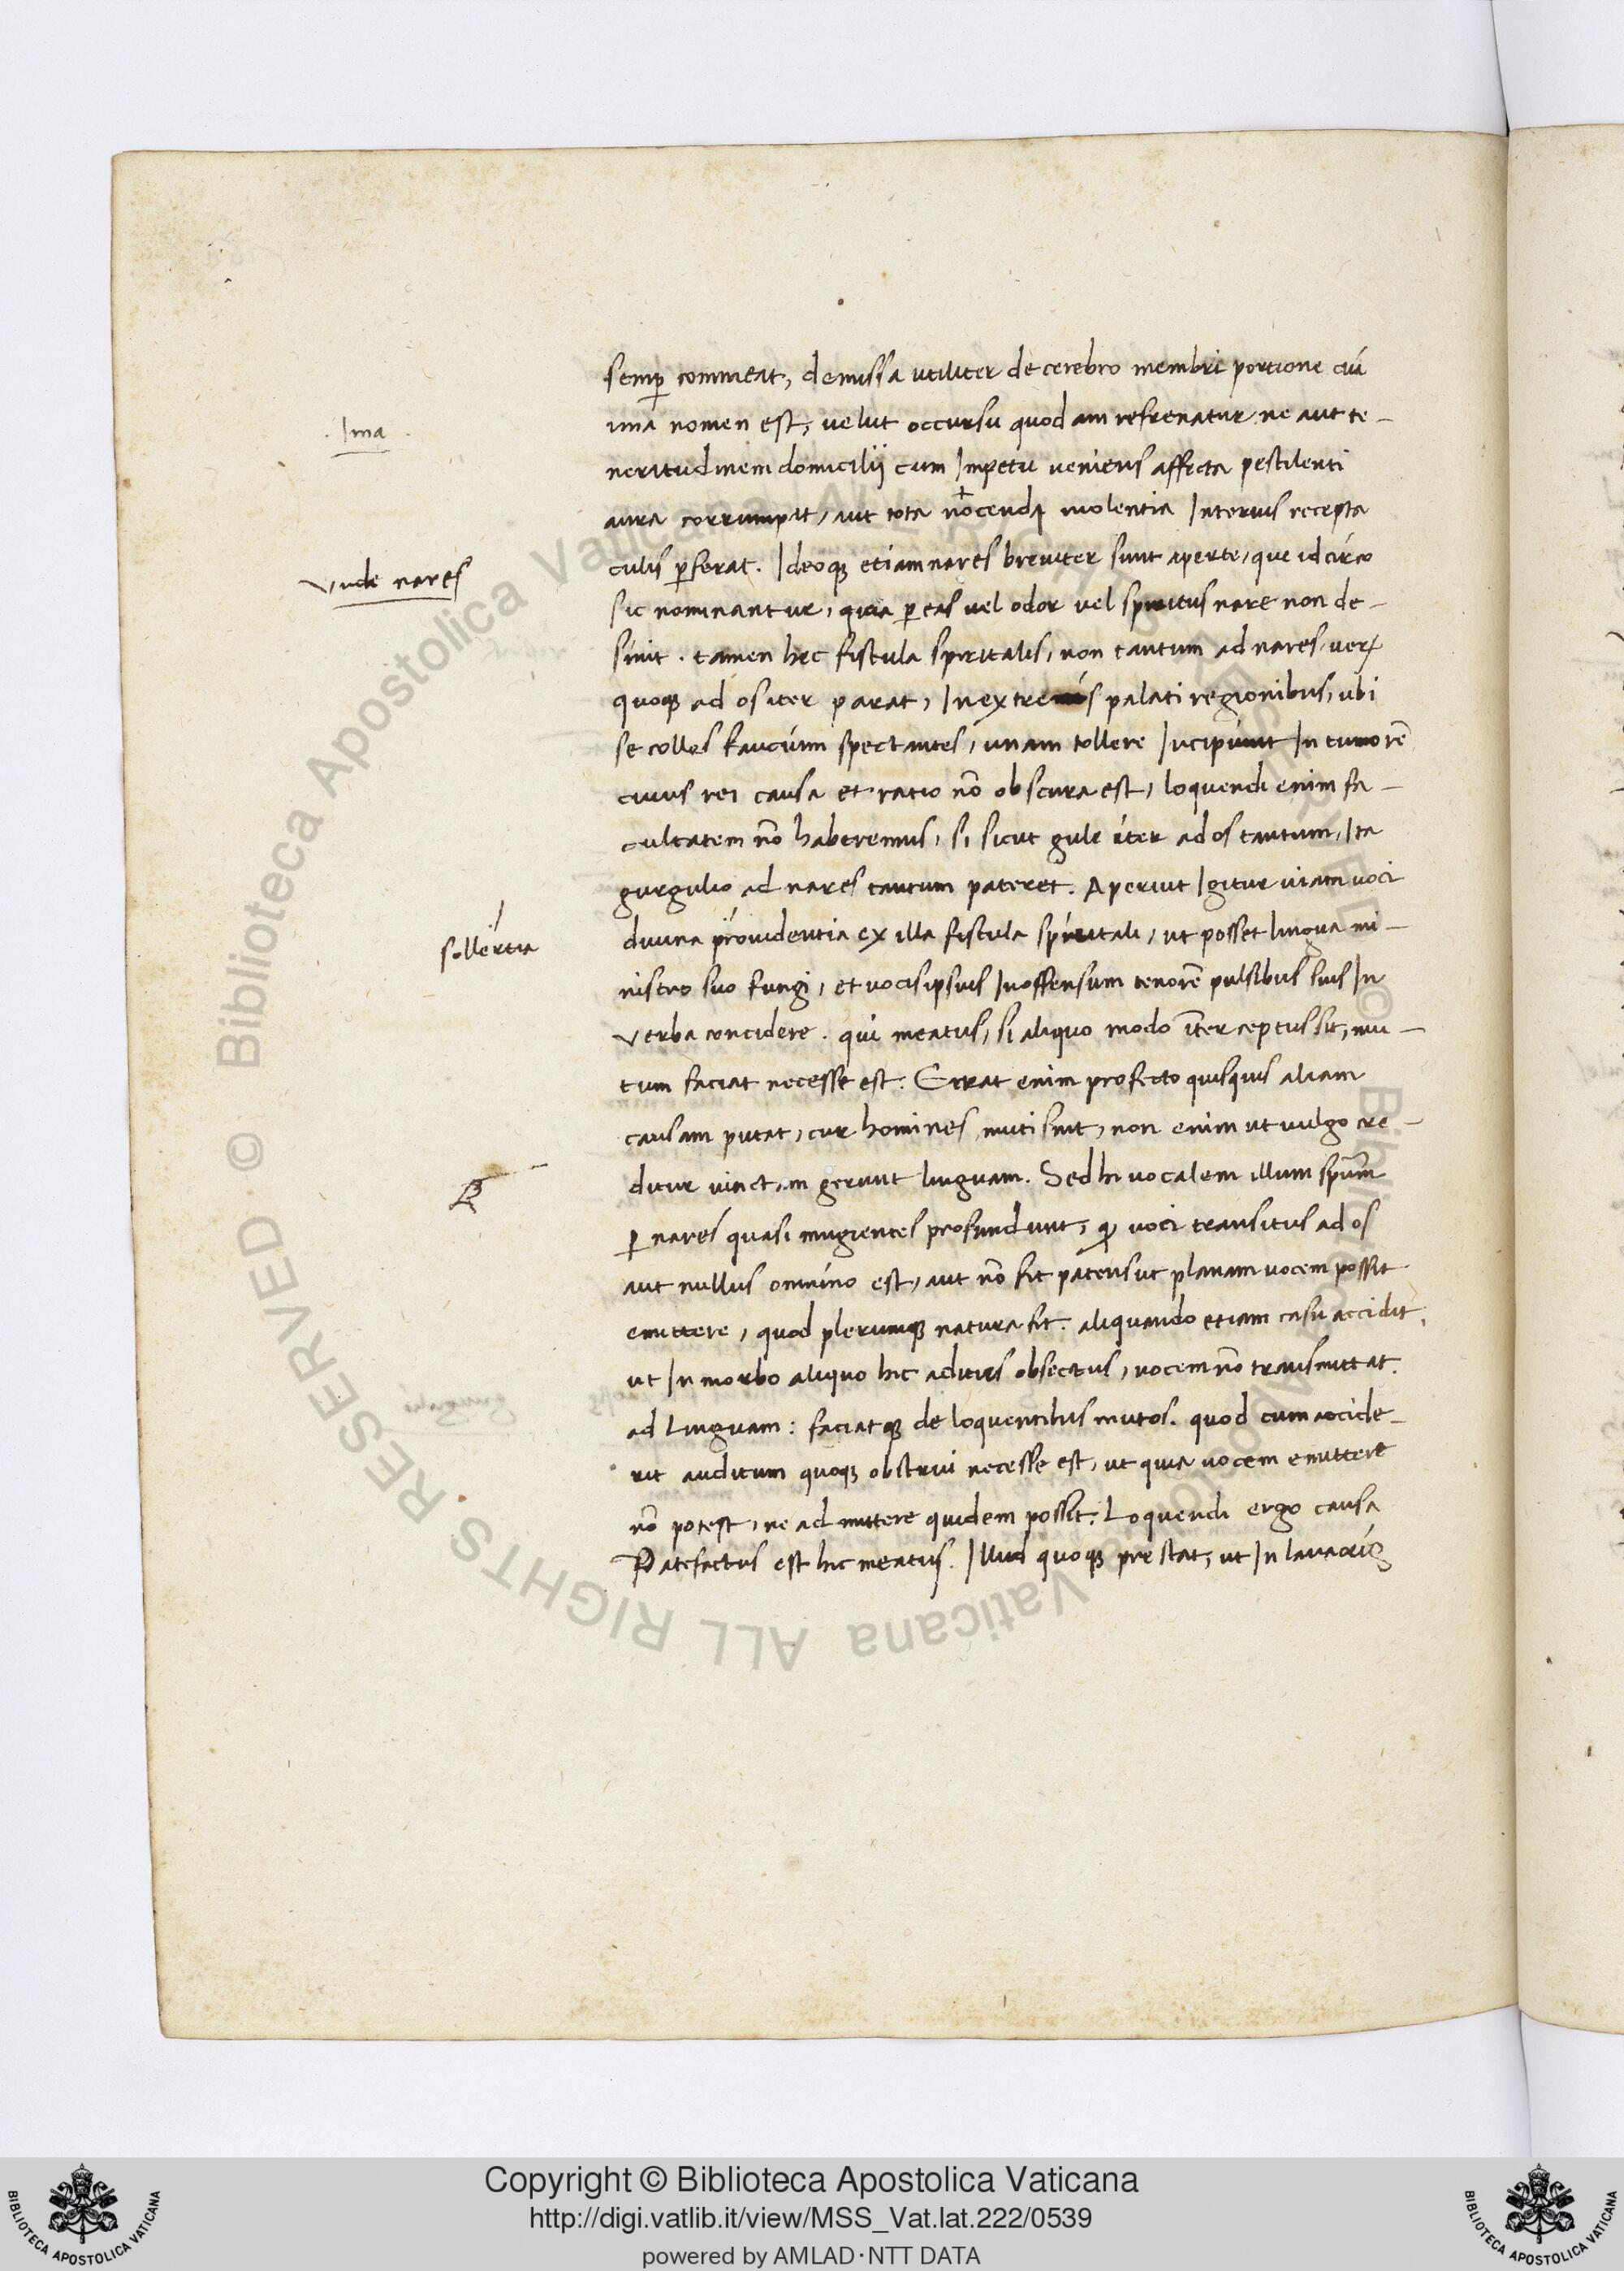 semꝑ commeat, demissa utiliter de cerebro membri portione cui
·Ima·
ima nomen est, velut occursu quodam refrenatur ne aut te-
neritudinem domicilij cum Impetu veniens affecta pestilenti
aura corrumpat, aut tota nocendi violentia Interius recepta
culis ꝑferat. Ideoqꝫ etiam nares breviter sunt aperte, que idcirco
Vnde nares
sic nominantur, quia ꝑ eas vel odor vel spiritus nare non de-
sinit. tamen hec fistula spiritalis, non tantum ad nares, verꝝ
quoqꝫ ad os iter parat, In extremis palati regionibus, ubi
se colles faucium spectantes, unam tollere Incipiunt In tumorē
cuius rei causa et ratio nō obscura est, loquendi enim fa-
cultatem nō haberemus, si sicut gule iter ad os tantum, Ita
gurgulio ad nares tantum pateret. Aperiut Igitur viam voci
sollertia
divina providentia ex illa fistula spiritali, ut posset lingua mi-
nistro suo fungi, et vocis ipsius Inoffensum tenorē pulsibus suis In
verba concidere. qui meatus, si aliquo modo īterceptus sit, mu-
tum faciat necesse est. Errat enim profecto quisquis aliam
causam putat, cur homines muti sint, non enim ut vulgo cre-
ditur vinctam gerunt linguam. Sed hi vocalem illum spūm
ꝑ nares quasi mugientes profundunt, qꝫ voci transitus ad os
aut nullus omnino est, aut nō sit patens ut planam vocem possit
emittere, quod plerumqꝫ natura fit. aliquando etiam casu accidit,
ut In morbo aliquo hic aditus obsectus, vocem nō transmittat.
ad Linguam: faciatqꝫ de loquentibus mutos. quod cum accide-
rit auditum quoqꝫ obstrui necesse est, ut quia vocem emittere
nō potest, ne admittere quidem possit. Loquendi ergo causa
Patefactus est hic meatus. Illud quoqꝫ prestat, ut In lavacris
Copyright © Biblioteca Apostolica Vaticana
http://digi.vatlib.it/view/MSS_Vat.lat.222/0539
powered by AMLAD·NTT DATA
BIBLIOTECA APOSTOLICA VATICANA
BIBLIOTECA APOSTOLICA VATICANA
© Biblioteca Apostolica Vaticana ALL RIGHTS RESERVED © Biblioteca Apostolica Vaticana ALL RIGHTS RESERVED